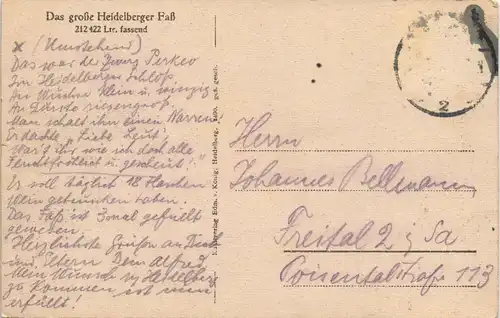 Das große Heidelberger Faß
212422 Ltr. fassend
x (Umstehend)
Das war der Zwerg Perkeo
Im Heidelberger Schloß
An Wuchse klein u. winzig
An Durste riesengroß
Man schalt ihn einen Narren
Er dachte, "Liebe Leut!
Wär't ihr wie ich doch alle
Feuchtfröhlich u. gescheut!"
Er soll täglich 18 Flaschen
Wein getrunken haben.
Das Faß ist 3mal gefüllt
gewesen.
Herzlichste Grüße an Dich
und Eltern Dein Alfred
Mein Wunsch n. Heidelberg
zu kommen ist nun
erfüllt!
Verlag Edm. v. König, Heidelberg, ges. gesch.
2
Herrn
Johannes Bellmann
Freital 2 i/Sa
Poisentalstraße 113